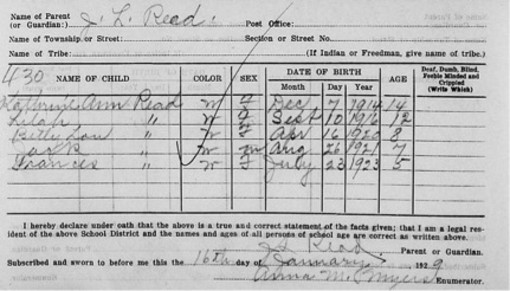 Name of Parent (or Guardian: J. L. Read. Post Office:
Name of Township or Street: Section or Street No.
Name of Tribe: (If Indian or Freedman, give name of tribe.)
430 NAME OF CHILD COLOR SEX DATE OF BIRTH Month Day Year AGE Deaf, Dumb, Blind, Feeble Minded and Crippled (Write Which)
Katherine Ann Read W F Dec 7 1914 14
Lilah " W F Sept 10 1916 12
Betty Lou " W F Apr 16 1920 8
Jack " W M Aug 26 1921 7
Frances " W F July 23 1923 5
I hereby declare under oath that the above is a true and correct statement of the facts given; that I am a legal res-
ident of the above School District and the names and ages of all persons of school age are correct as written above.
J L Read Parent or Guardian.
Subscribed and sworn to before me this the 16th day of January 1929
Anna M. Myers Enumerator.